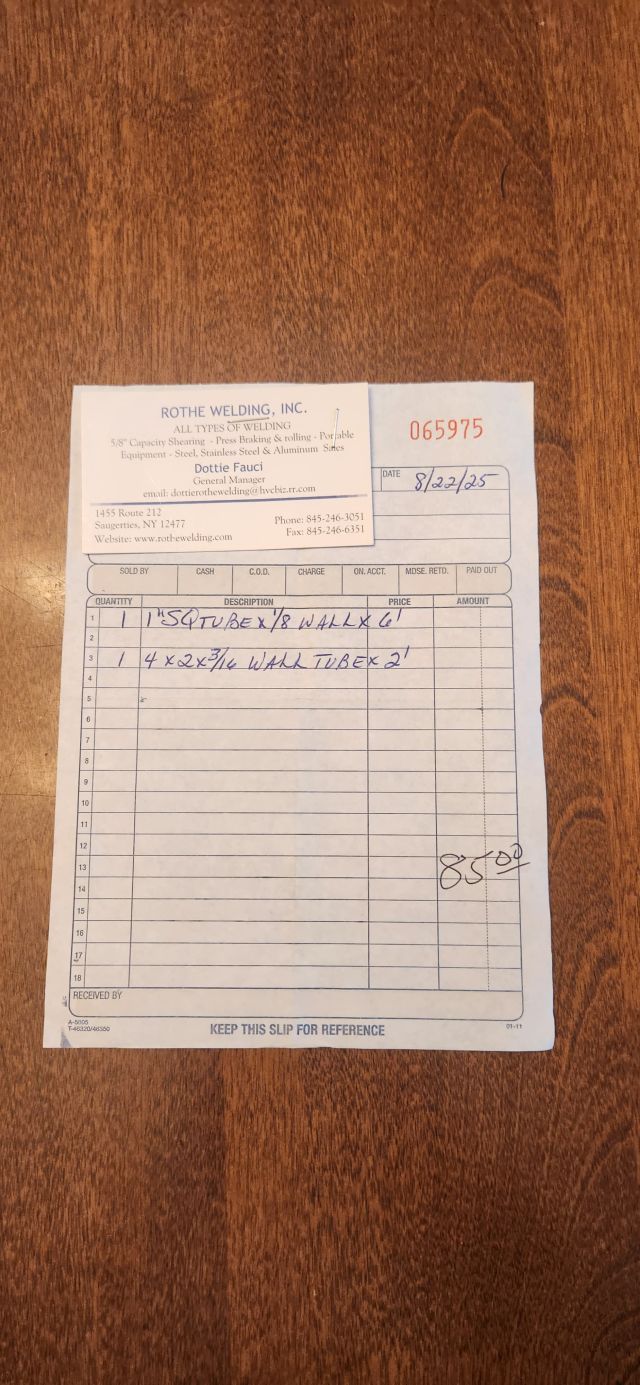 ROTHE WELDING, INC.
ALL TYPES OF WELDING
5/8" Capacity Shearing - Press Braking & rolling - Portable
Equipment - Steel, Stainless Steel & Aluminum Sales
Dottie Fauci
General Manager
email: dottierothewelding@hvcbiz.rr.com
1455 Route 212
Saugerties, NY 12477
Website: www.rothewelding.com
Phone: 845-246-3051
Fax: 845-246-6351
065975
DATE 8/22/25
SOLD BY CASH C.O.D. CHARGE ON. ACCT. MDSE. RETD. PAID OUT
QUANTITY DESCRIPTION PRICE AMOUNT
1 1 1" SQ TUBE x 1/8 WALL x 6'
2
3 1 4 x 2 x 3/16 WALL TUBE x 2'
4
5
6
7
8
9
10
11
12
13 85.00
14
15
16
17
18
RECEIVED BY
A-5805
T-46320/46350
KEEP THIS SLIP FOR REFERENCE
01-11